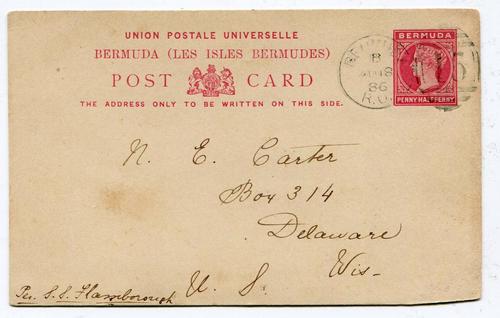 UNION POSTALE UNIVERSELLE
BERMUDA (LES ISLES BERMUDES)
POST CARD
THE ADDRESS ONLY TO BE WRITTEN ON THIS SIDE.
BERMUDA
PENNY HALFPENNY
B
86
N. E. Carter
Box 314
Delaware
Wis-
U. S.
Per. S. S. Flamborough